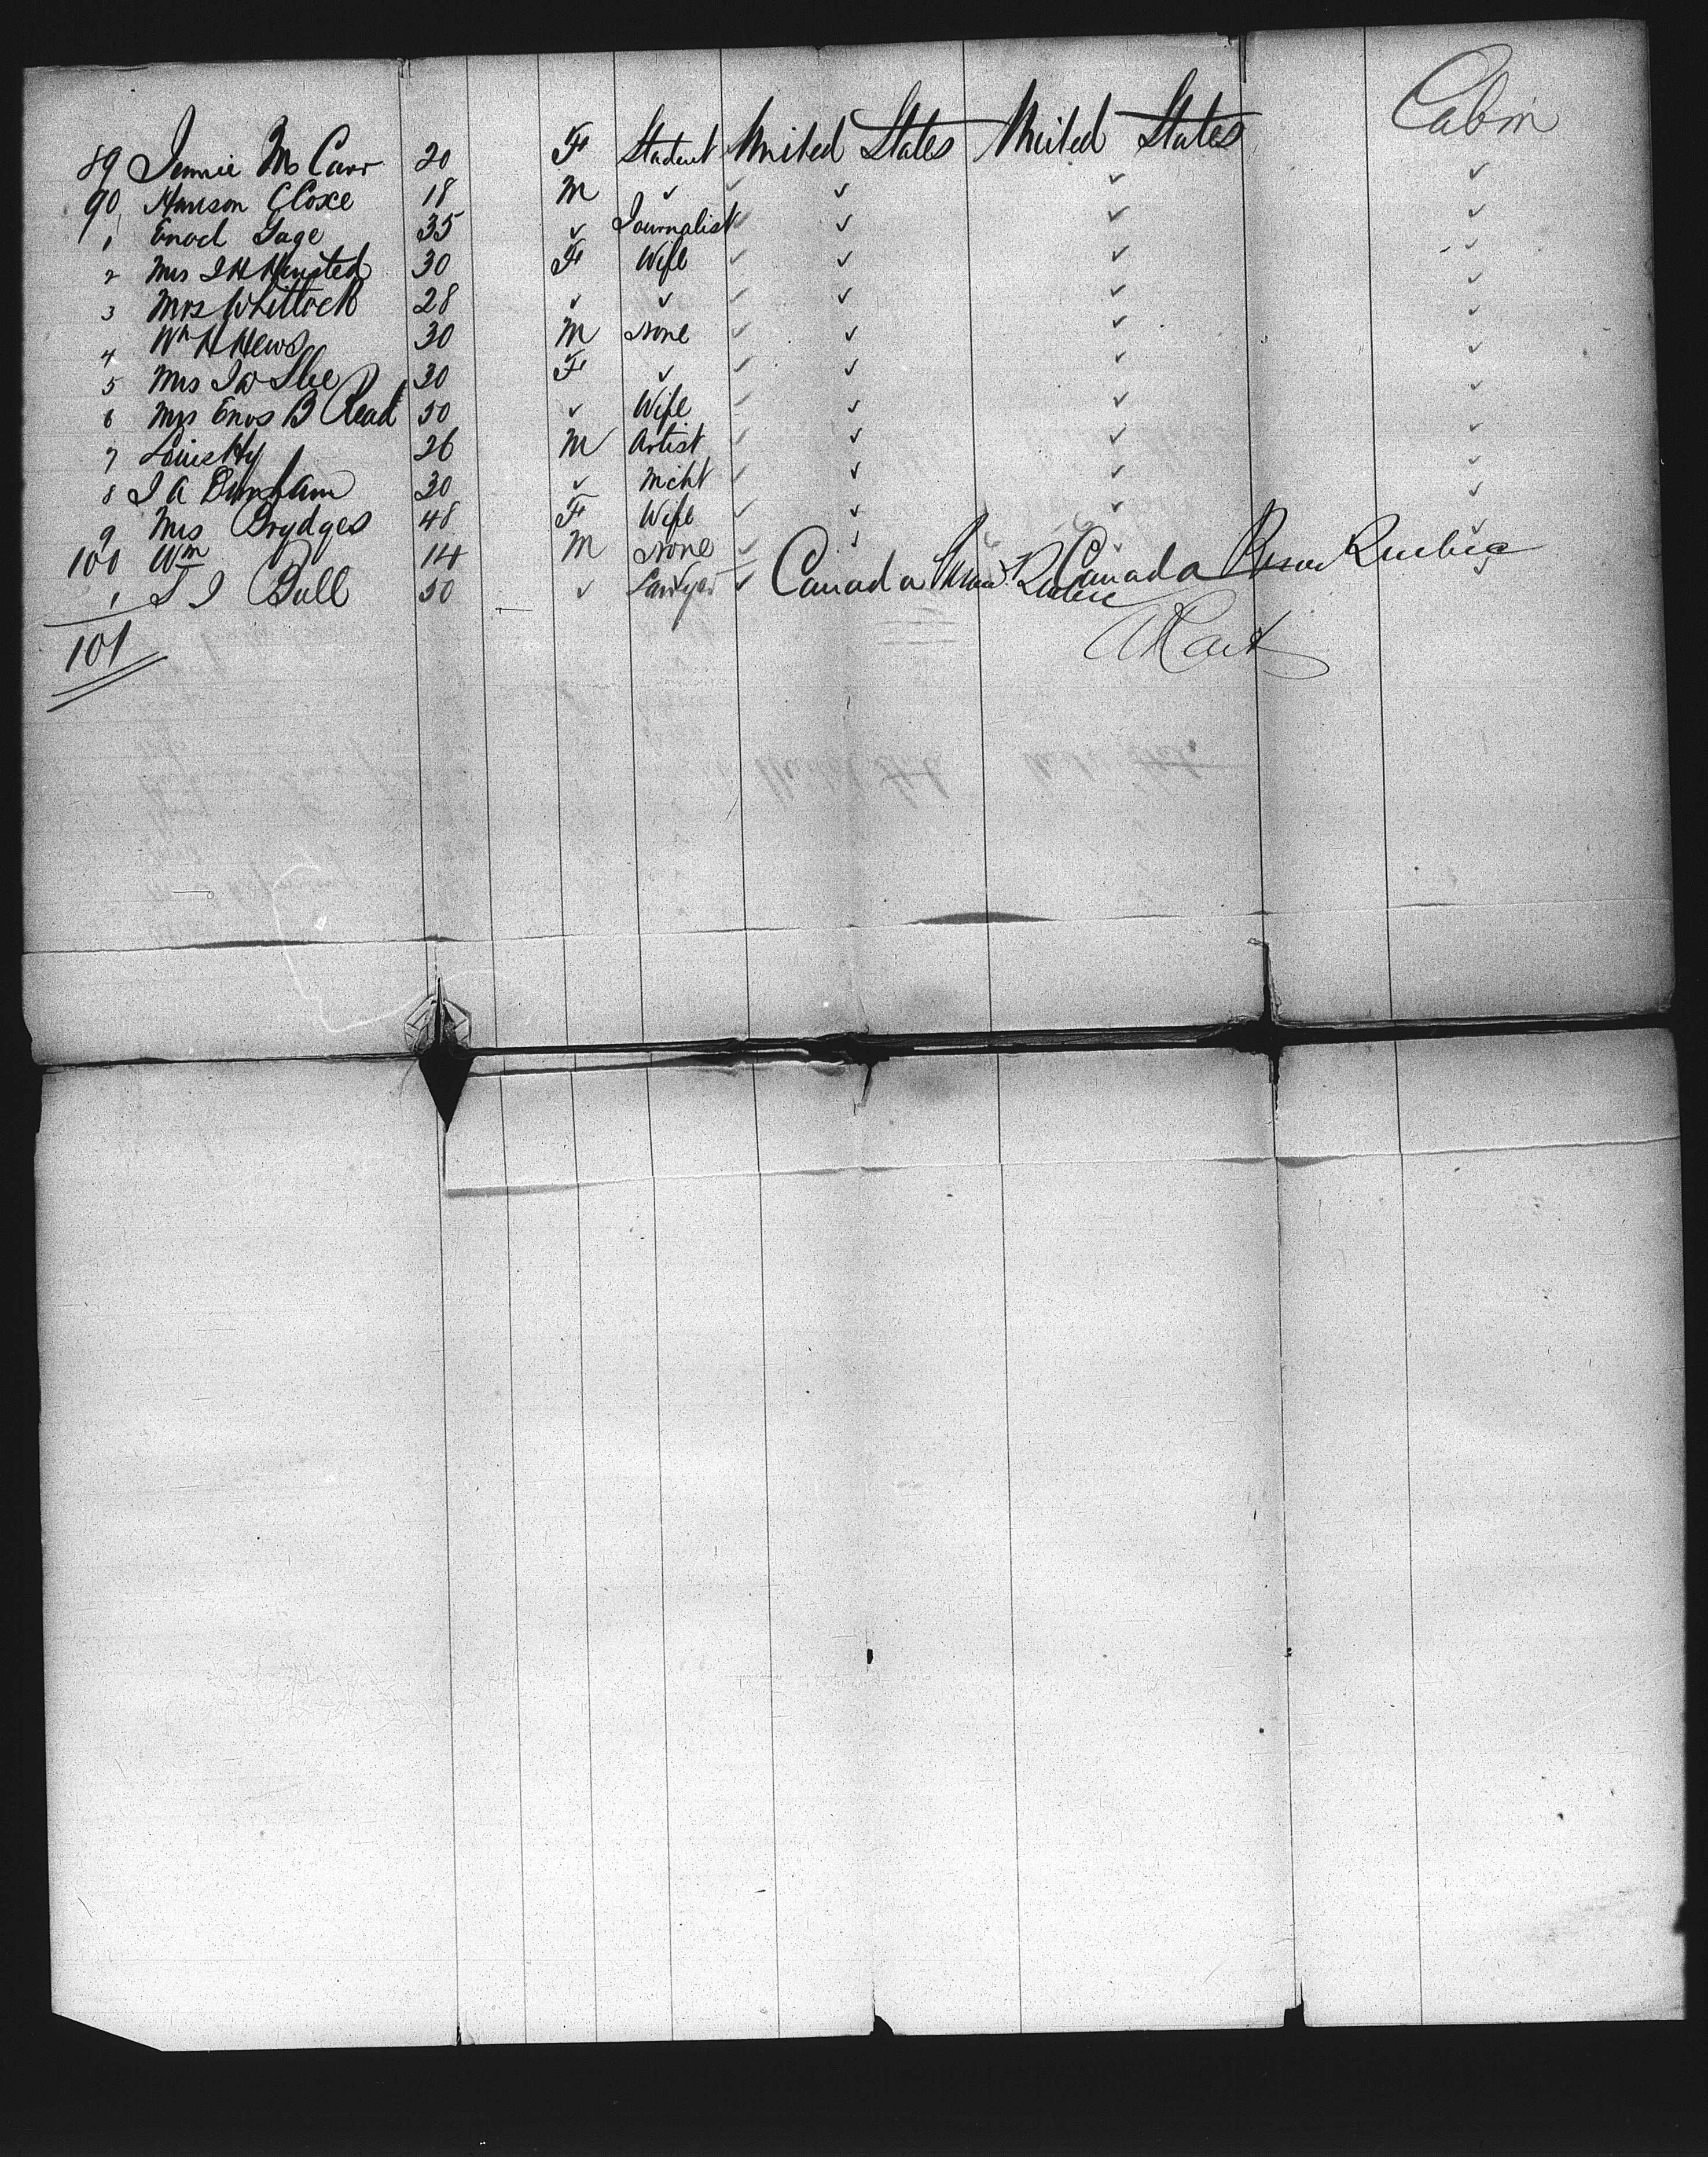 Cabin
89 Jennie M Carr 20 F Student United States United States
90 Hanson C Coxe 18 M ✓ ✓ ✓ ✓ ✓
1 Enoch Sage 35 ✓ Journalist ✓ ✓ ✓ ✓
2 Mrs I H Husted 30 F Wife ✓ ✓ ✓ ✓
3 Mrs Whitlock 28 ✓ ✓ ✓ ✓ ✓ ✓
4 Wm H Hews 30 M None ✓ ✓ ✓ ✓
5 Mrs 30 F ✓ ✓ ✓ ✓ ✓
6 Mrs Enos B Read 50 ✓ Wife ✓ ✓ ✓ ✓
7 26 M Artist ✓ ✓ ✓ ✓
8 I A Dunham 30 ✓ Mcht ✓ ✓ ✓ ✓
9 Mrs Brydges 48 F Wife ✓ ✓ ✓ ✓
100 Wm 14 M None ✓ ✓ ✓ ✓
1 Bull 50 ✓ Lawyer ✓ Canada Canada Quebec
101